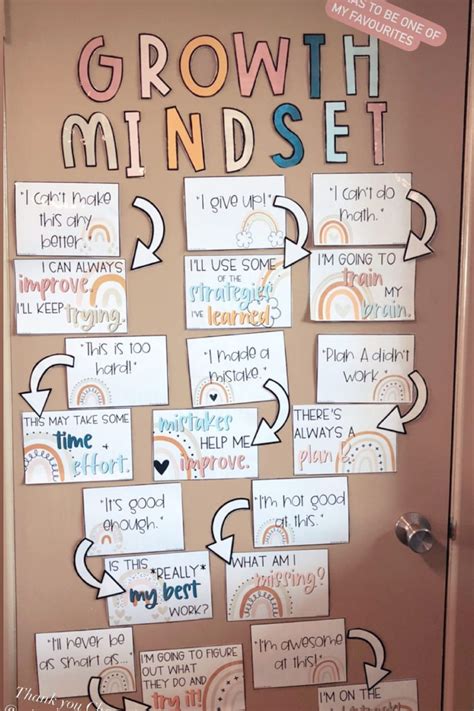 AS TO BE ONE OF
MY FAVOURITES
GROWTH
MINDSET
"I can't make
this any
better."
"I give up!"
"I can't do
math."
I CAN ALWAYS
improve.
I'LL KEEP trying.
I'LL USE SOME
OF THE
strategies
I'VE learned
I'M GOING TO
train
MY
brain.
"This is too
hard!"
"I made a
mistake."
"Plan A didn't
work."
THIS MAY TAKE SOME
time +
effort.
mistakes
HELP ME
improve.
THERE'S
ALWAYS A
plan B
"It's good
enough."
"I'm not good
at this."
IS THIS *REALLY*
my best
WORK?
WHAT AM I
missing?
"I'll never be
as smart as..."
"I'm awesome
at this!"
I'M GOING TO FIGURE
OUT WHAT
THEY DO AND
try it!
I'M ON THE
Thank you